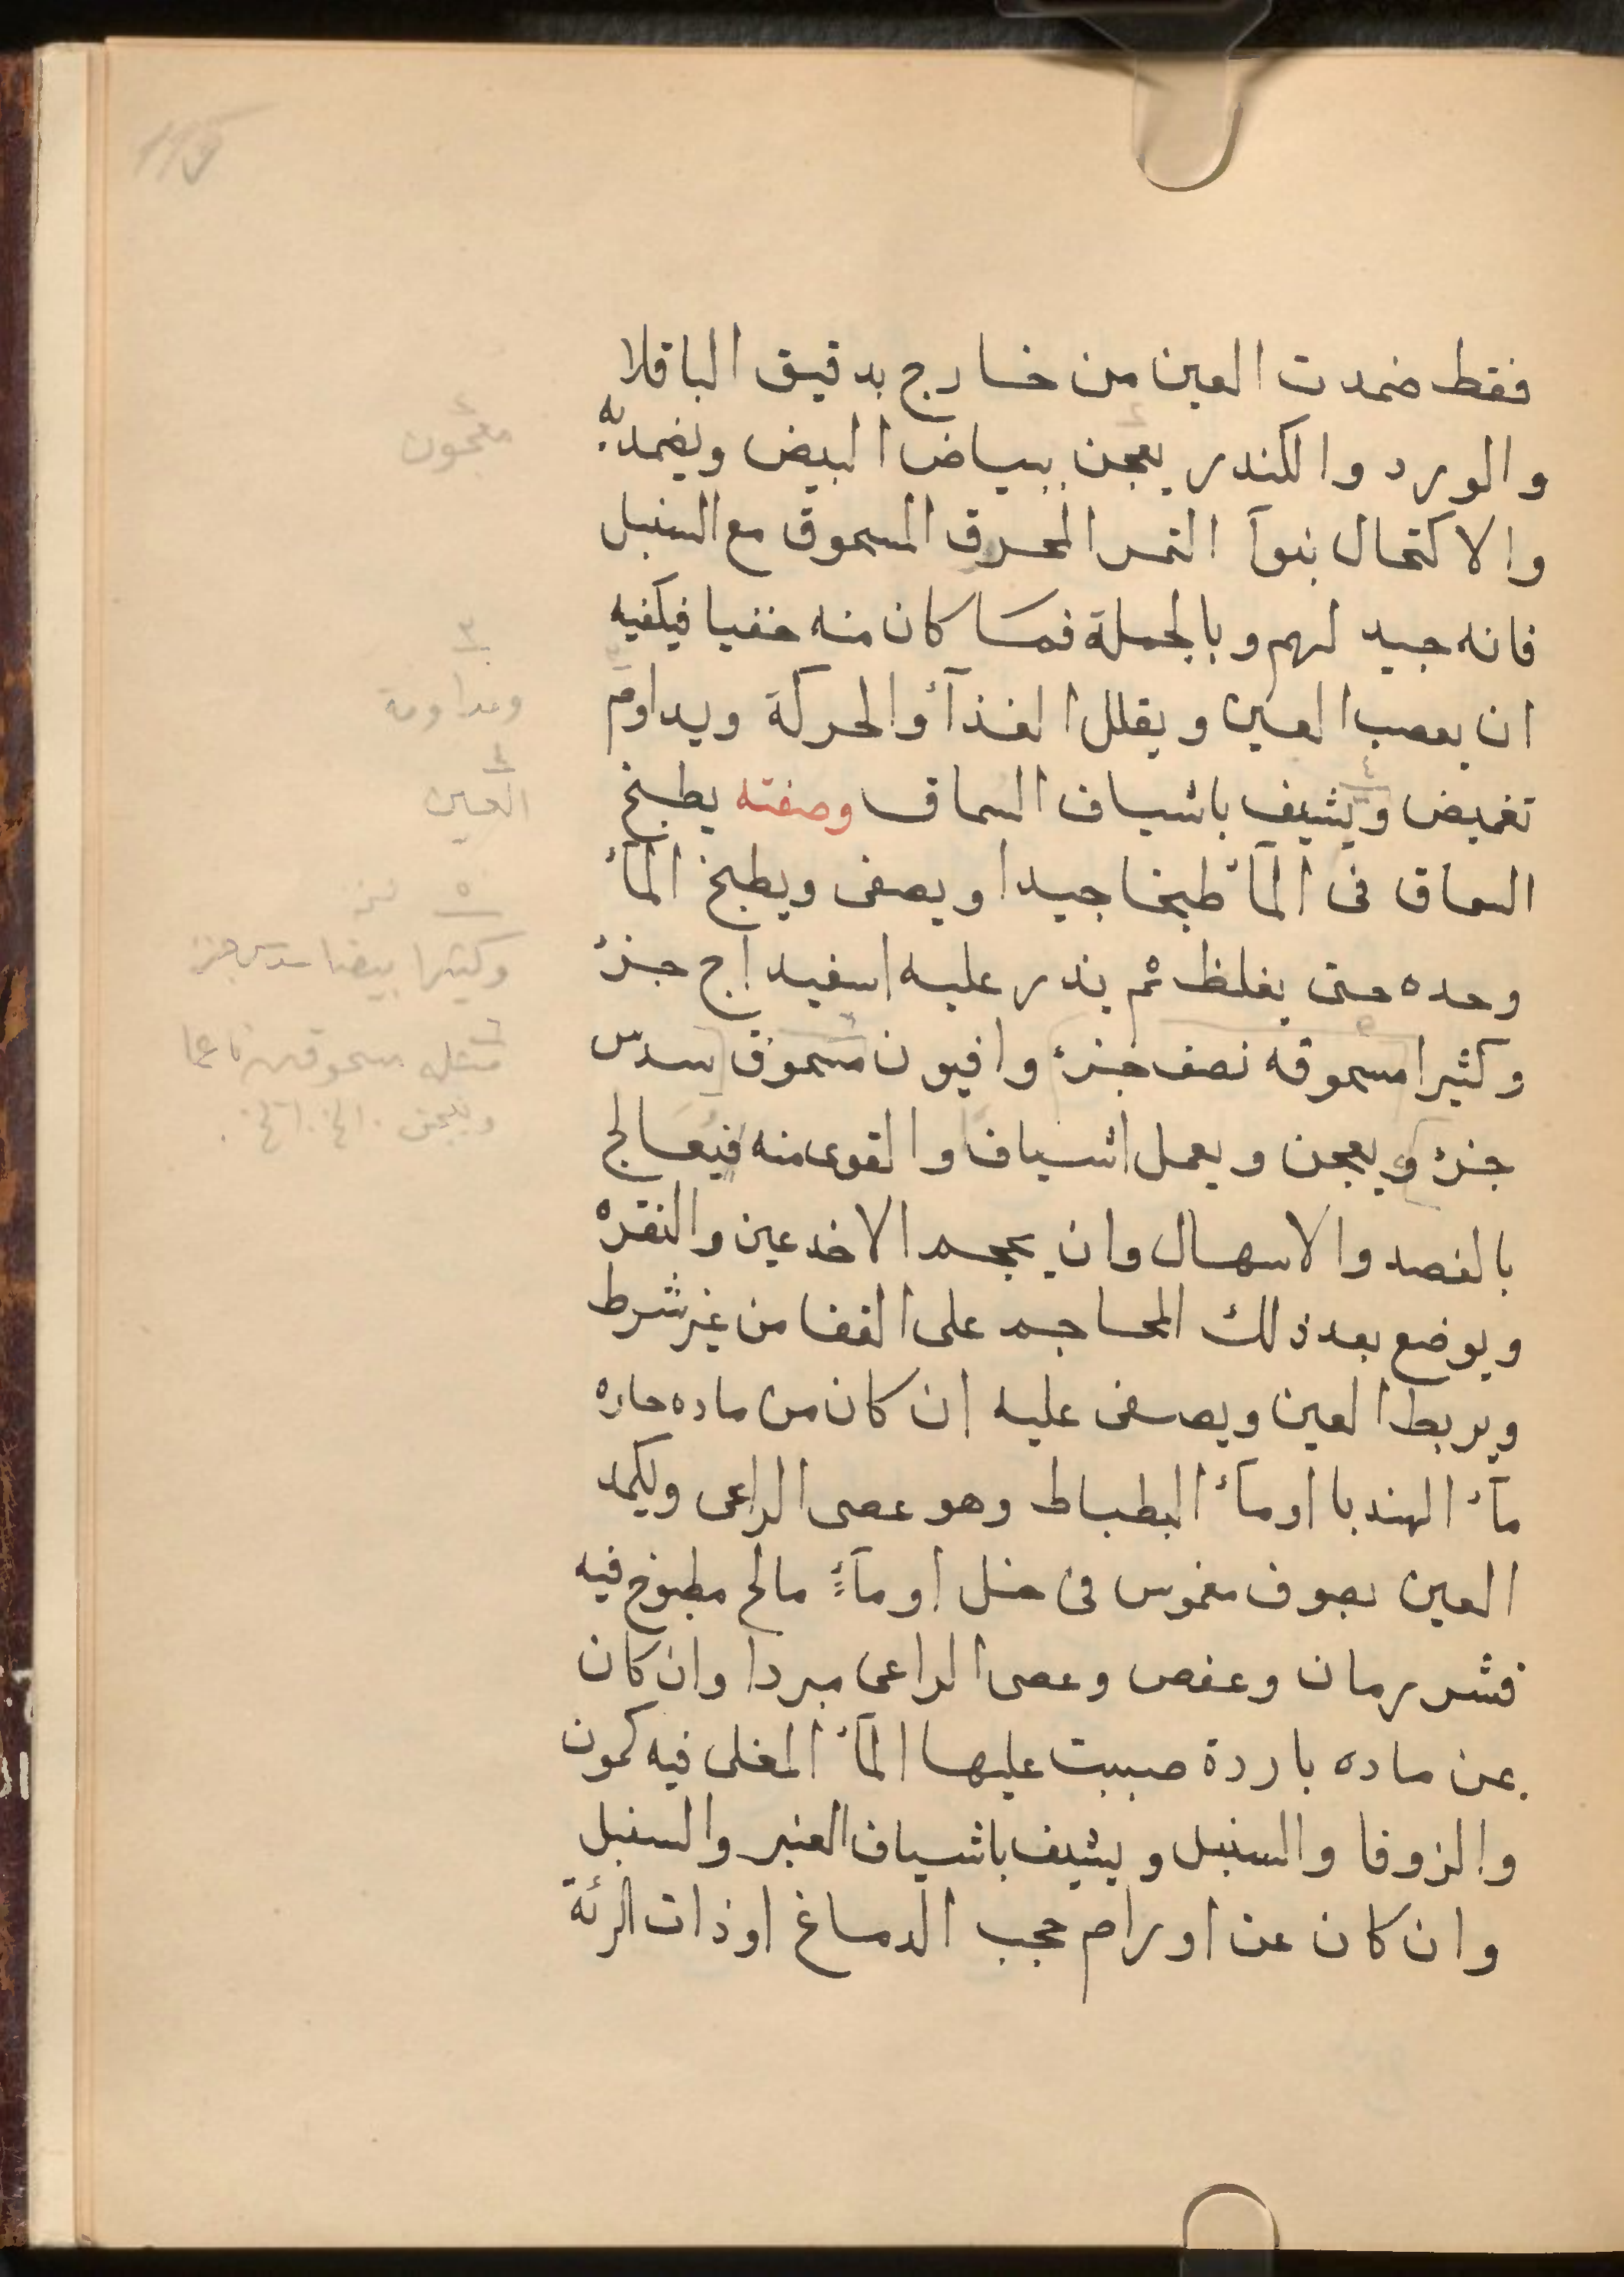 فقط ضمدت العين من خارج بدقيق الباقلا
والورد والكندر يعجن ببياض البيض ويضمد به
والاكتحال بنوآ التمر المحرق المسحوق مع السنبل
فانه جيد لهم وبالجملة فما كان منه خفيا فيكفيه
ان يعصب العين ويقلل الغذآء والحركة ويداوم
تغميض ويشيف باشياف السماق وصفته يطبخ
السماق فى المآء طبخا جيدا ويصفى ويطبخ المآء
وحده حتى يغلظ ثم يذر عليه اسفيداج جزء
وكثيرا مسحوقه نصف جزء وافيون مسحوق سدس
جزء ويعجن ويعمل اشياف والقوى منه فيعالج
بالفصد والاسهال وان يحجم الاخدعين والنقره
ويوضع بعد ذلك المحاجم على القفا من غير شرط
ويربط العين ويصفى عليه ان كان من ماده حاره
مآء الهندبا او مآء البطباط وهو عصى الراعى ويكمد
العين بصوف مغموس فى خل او مآء مالح مطبوخ فيه
قشر رمان وعفص وعصى الراعى مبردا وان كان
عن ماده باردة صببت عليها المآء المغلى فيه كمون
والزوفا والسنبل ويشيف باشياف العنبر والسنبل
وان كان عن اورام حجب الدماغ او ذات الرئة
معجون
٣
ومداومة
٤
العين
٥
وكثيرا بيضا سدس جزء
٦